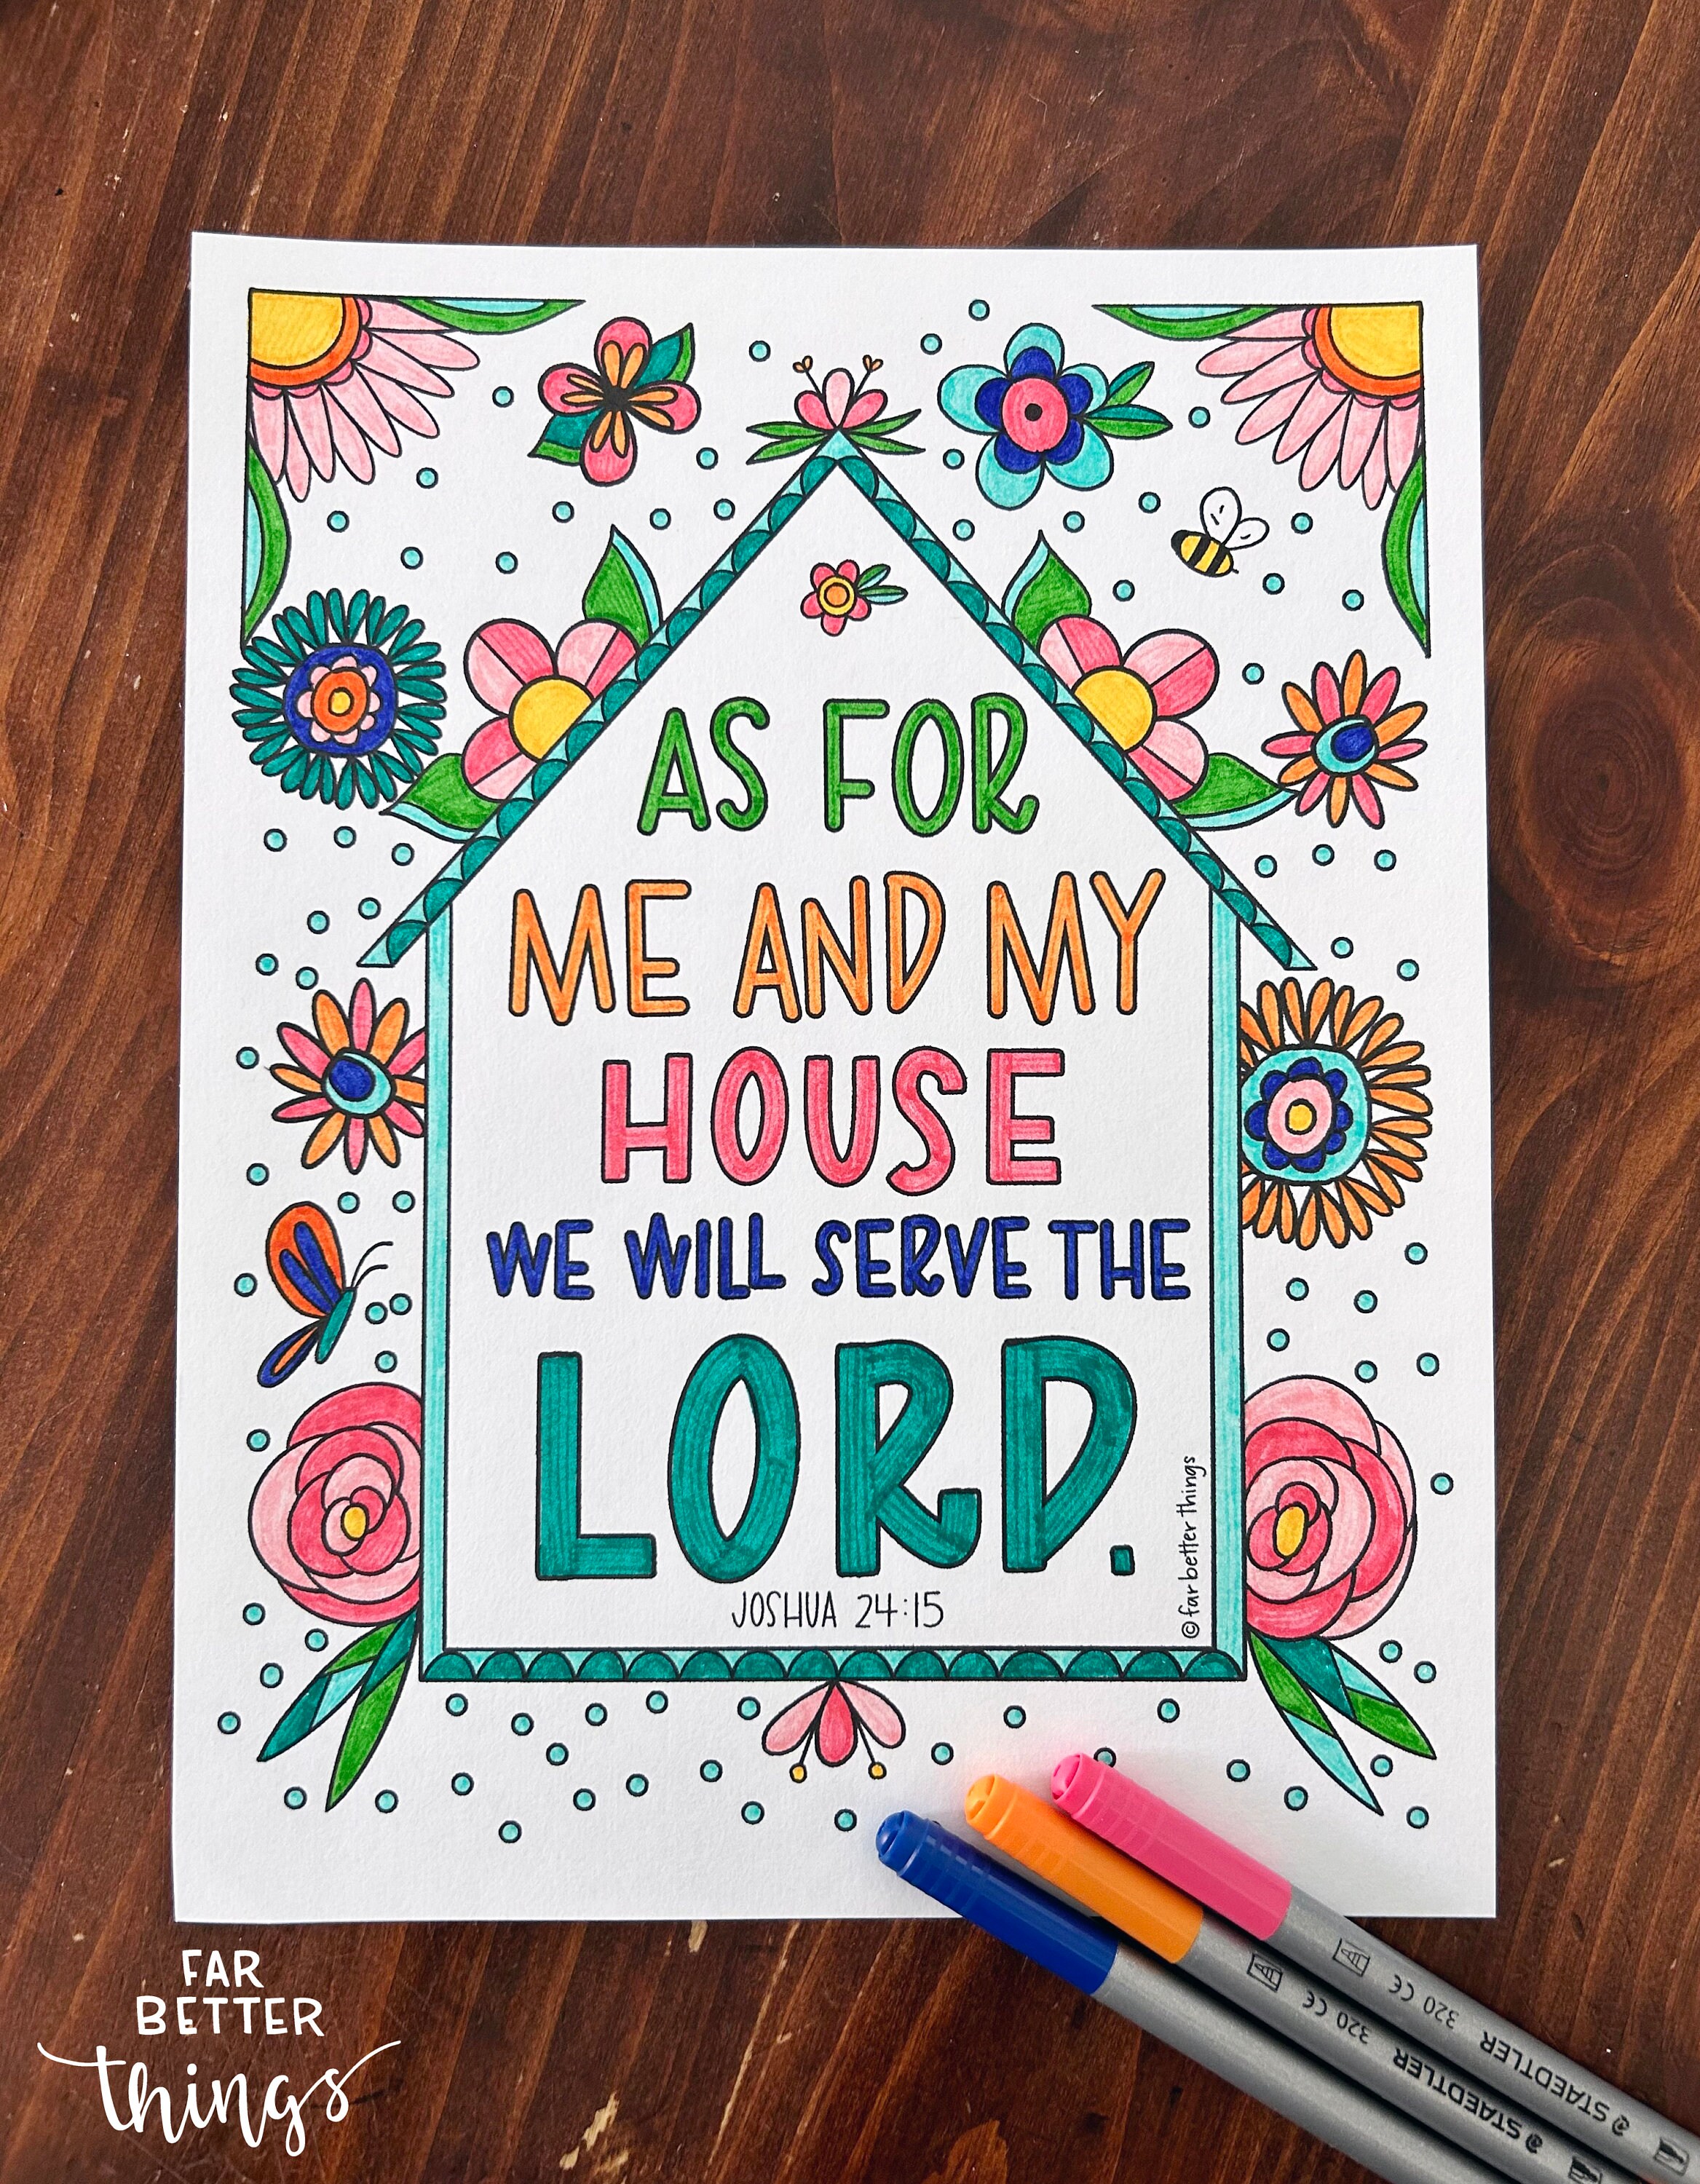 AS FOR
ME AND MY
HOUSE
WE WILL SERVE THE
LORD.
JOSHUA 24:15
©far better things
FAR
BETTER
things
320 CE
STAEDTLER
320 CE
STAEDTLER